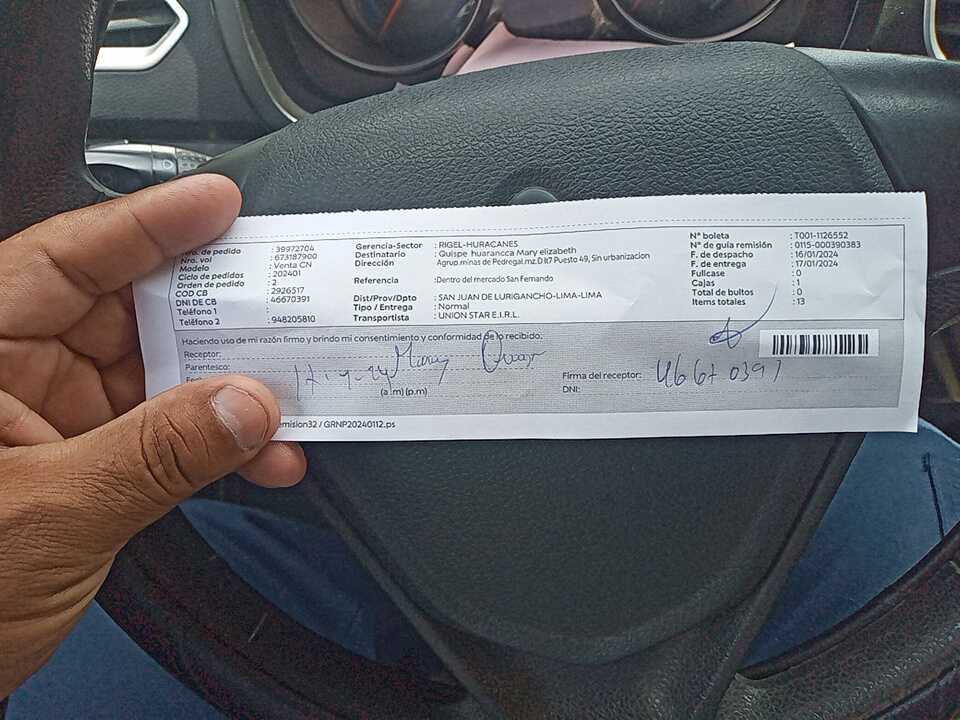 Nro. de pedido : 39972704
Nro. vol : 673187900
Modelo : Venta CN
Ciclo de pedidos : 202401
Orden de pedido : 2
COD CB : 2926517
DNI DE CB : 46670391
Teléfono 1 :
Teléfono 2 : 948205810
Gerencia-Sector : RIGEL-HURACANES
Destinatario : Quispe huarancca Mary elizabeth
Dirección Agrup.minas de Pedregal.mz.D lt7 Puesto 49, Sin urbanizacion
Referencia :Dentro del mercado San Fernando
Dist/Prov/Dpto : SAN JUAN DE LURIGANCHO-LIMA-LIMA
Tipo / Entrega : Normal
Transportista : UNION STAR E.I.R.L.
Nª boleta : T001-1126552
Nª de guía remisión : 0115-000390383
F. de despacho : 16/01/2024
F. de entrega : 17/01/2024
Fullcase : 0
Cajas : 1
Total de bultos : 0
Items totales : 13
Haciendo uso de mi razón firmo y brindo mi consentimiento y conformidad de lo recibido.
Receptor: Mary
Parentesco:
(a .m) (p.m)
Firma del receptor:
DNI: 46670391
emision32 / GRNP20240112.ps